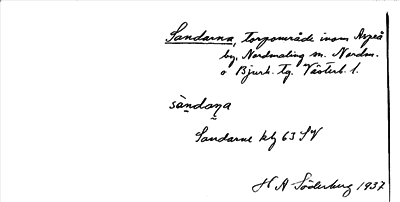 Sandarna, torpområde inom Aspeå
by, Nordmaling sn. Nordm.
o Bjurh. tg. Västerb. l.
sàndaṇa
Sandarne kbl 63 SV
H A Söderberg 1937